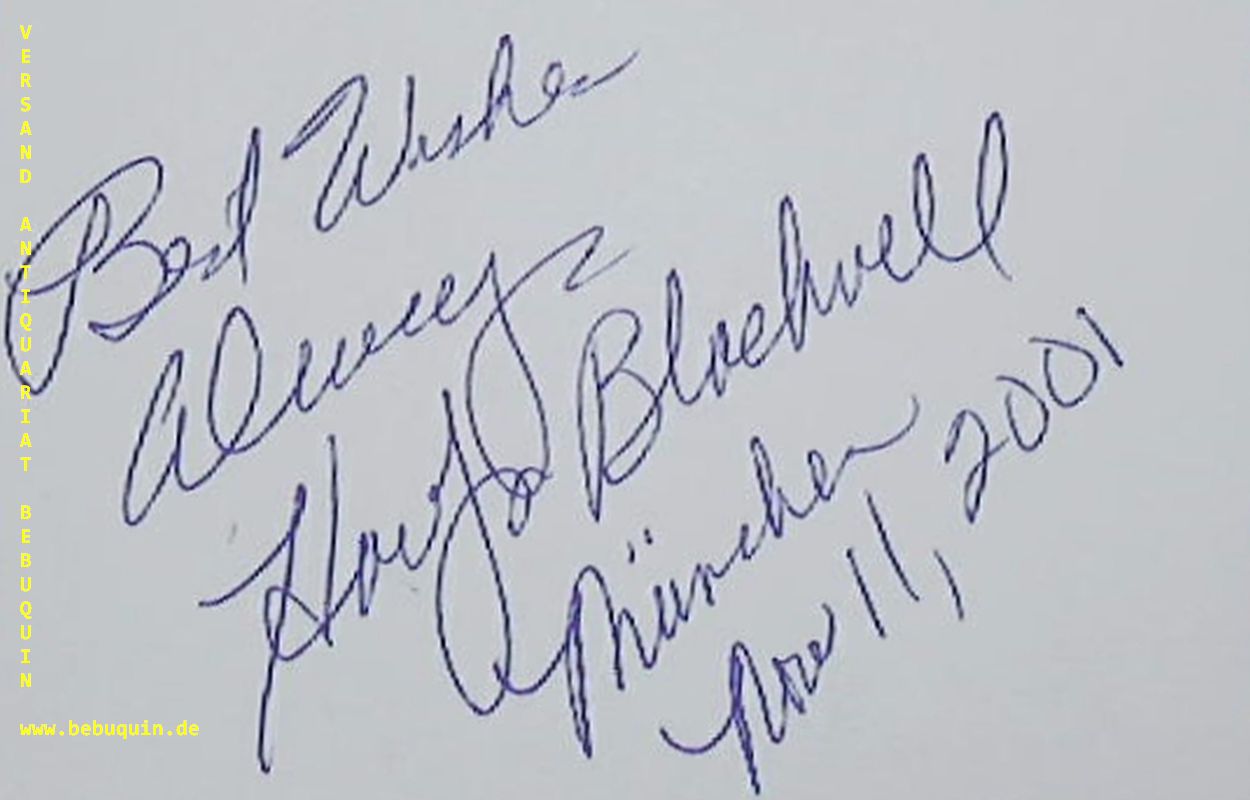 Best Wishes
Always
Harolyn Blackwell
München
Nov 11, 2001
VERSAND ANTIQUARIAT BEBUQUIN
www.bebuquin.de